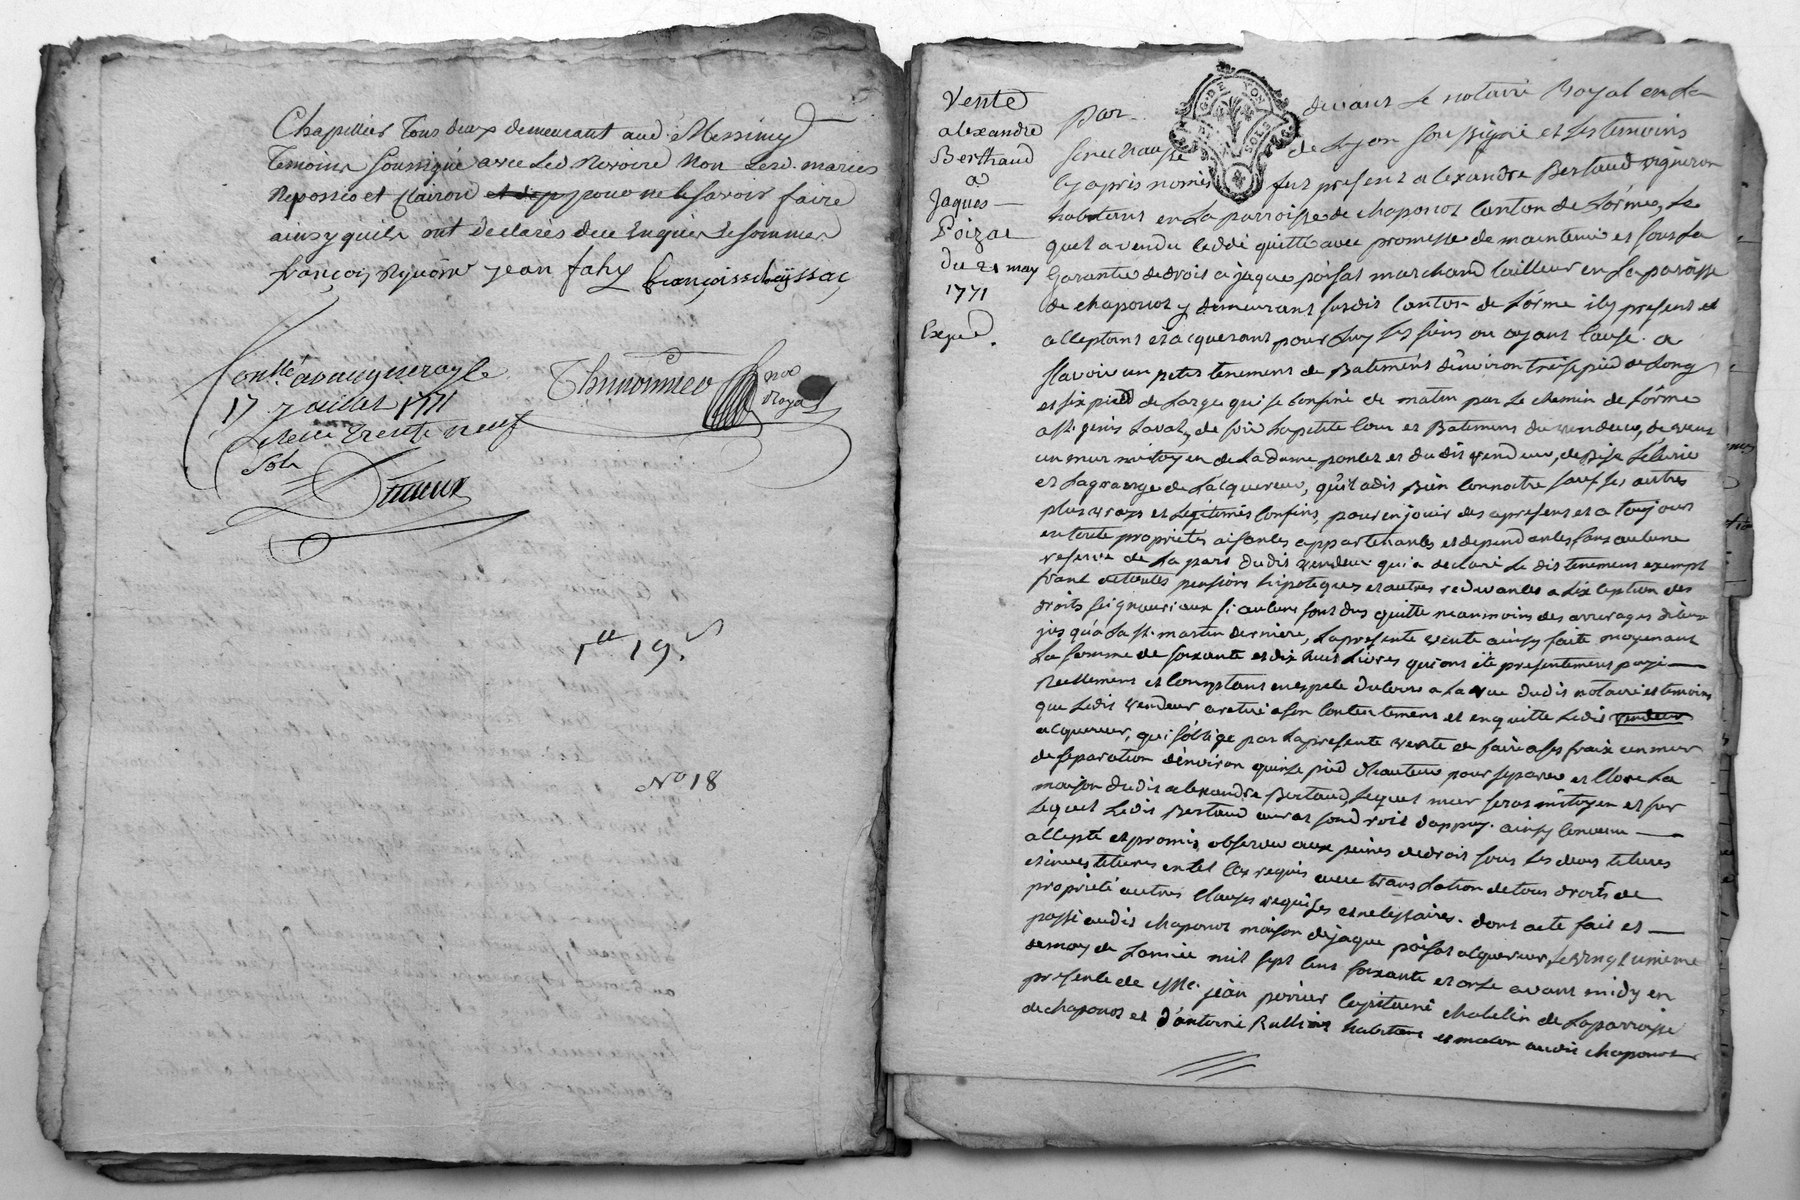 Chapellier Tous deux demeurant aud. Messimy
Temoins Soussigné avec Led. Revoire Non Lesd. mariés
Reponse et Clairon et de pour ne le Savoir faire
ainsy quils ont Declarés dece Enquis et sommés
françois Jean fahy françois
Con.lé a vaugneray le
17 Juillet 1771
Reçu Trente neuf
Sols
Thimonnier Not Royal
1lt 19s
No 18
Vente
alexandre
Berthaud
a
Jaques
Poizat
du 21 may
1771
Expé.
GDE LYON
SOLS
Par devant Le notaire Royal en La
Senechaussé de Lyon soussigné et Les temoins
cy apris només fut present alexandre Bertaud vigneron
habitant en La parroisse de chaponost Canton de Lórme, Le
quel a vendu ceddé quitté avec promesse de maintenir et sous La
Garantie de droit a jaque poisat marchand tailleur en La paroisse
de chaponost y demeurant susdit Canton de Lórme icy present et
acceptant et acquerant pour Luy Les siens ou ayant Cause. a
sçavoir un petit tenement de Batiment d'environ treise pied de Long
et six pied de Large qui se Confine de matin par Le chemin de Lórme
a st. genis Laval, de soir La petite Cour et Batiment du vendeur, de vent
un mur mitoyen de La dame et dudit vendeur, de Bise L'écurie
et La grange de Lacquereur, qu'il a dit Bien Connoitre sauf ses autres
plus vrays et Legitimes Confins, pour en jouir des a present et a toujours
en toute proprietés aisances appartenances et dependances sans aucune
reserve de La part dudit vendeur qui a declaré Le dit tenement exempt
franc de toutes pensions hipoteques et autres redevances a Lexception des
droits seigneuriaux si aucuns sont dus quitte neanmoins des arrerages d'iceux
jusqu'a La st. martin derniere, La presente vente ainsy faite moyenant
La somme de soixante et dix huit Livres qui ont été presentement payé
Reellement et Comptant en espece du Cours a La vue dudit notaire et temoins
que Ledit vendeur a retiré a son Contentement et en quitte Ledit vendeur
acquereur, qui s'oblige par La presente vente de faire a ses fraix un mur
de separation d'environ quinse pied d'hauteur pour separer et Clore La
maison dudit alexandre Bertaud, Lequel mur seras mitoyen et sur
Lequel Ledit Bertaud auras son droit d'appuy. ainsy Convenu
accepté et promis observer aux peines de droit sous Les deux titures
et investitures en tel Cas requis avec translation de tous droits de
proprieté autres Clauses requises et necessaires. dont acte fait et
passé audit chaponost maison de jaque poisat acquereur, Le vingt unieme
de may de Lannée mil sept cent soixante et onze avant midy en
presence de Mre. jean perier Capitaine chatelin de La parroisse
de chaponost et d'antoine habitant et audit chaponost